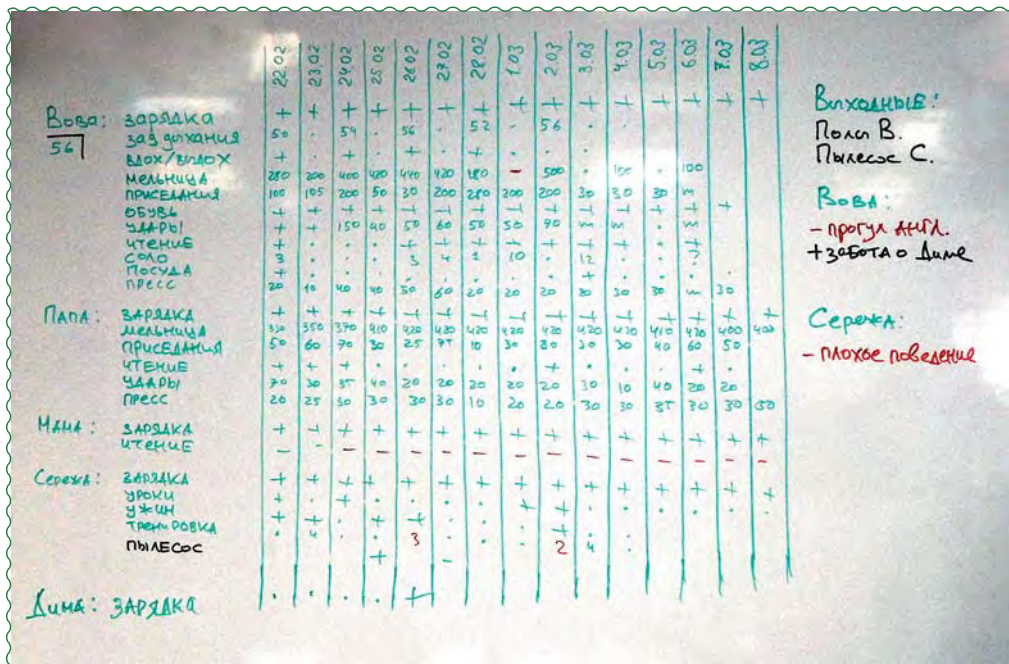 22.02 23.02 24.02 25.02 26.02 27.02 28.02 1.03 2.03 3.03 4.03 5.03 6.03 7.03 8.03
Вова: зарядка + + + + + + + + + + + + + + +
56
задыхания 50 · 54 · 56 · 52 · 56 · · · ·
вдох/выдох + · + · + · + · · · · · ·
мельница 280 200 400 420 440 420 480 – 500 · 100 · 100
приседания 100 105 200 50 30 200 280 200 200 30 30 30 m
обувь + + + + + + + + + + + + + +
удары + + 150 40 50 60 50 50 90 m m · m
чтение + · · · + + + + + · · · +
соло 3 · · · 3 4 2 10 · 12 · ·
посуда + · · · · · · · · + · · · ·
пресс 20 10 40 40 50 60 20 20 20 20 30 30 m 30
Папа: зарядка + + + + + + + + + + + + + + +
мельница 330 350 370 410 420 420 420 420 420 420 420 410 420 400 400
приседания 50 60 70 30 25 75 10 30 30 30 30 40 60 50
чтение + + + · · · · · + · · · + ·
удары 70 30 35 40 20 20 20 20 20 30 10 40 20 20
пресс 20 25 30 30 30 30 10 20 20 30 30 35 30 30 50
Мама: зарядка + + + + + + + + + + + + + + +
чтение – – – – – – – – – – – – – – –
Сережа: зарядка + + + + + + + + + + + + + + +
уроки + · + · · · · + + · · · · ·
ужин + + · + + · · · + · · · · ·
тренировка · 4 · · 3 · · · 2 4 · ·
пылесос + –
Дима: зарядка · · · · +
Выходные:
Полы В.
Пылесос С.
Вова:
– прогул англ.
+ забота о Диме
Сережа:
– плохое поведение